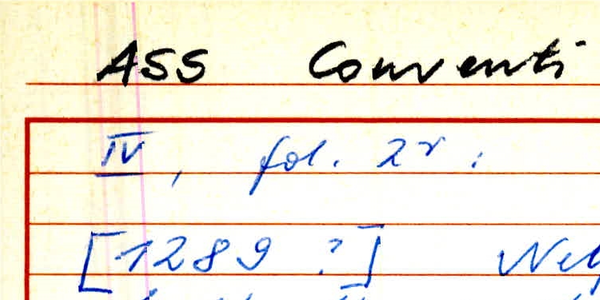 ASS Conventi
IV, fol. 2r:
[1289 ?]